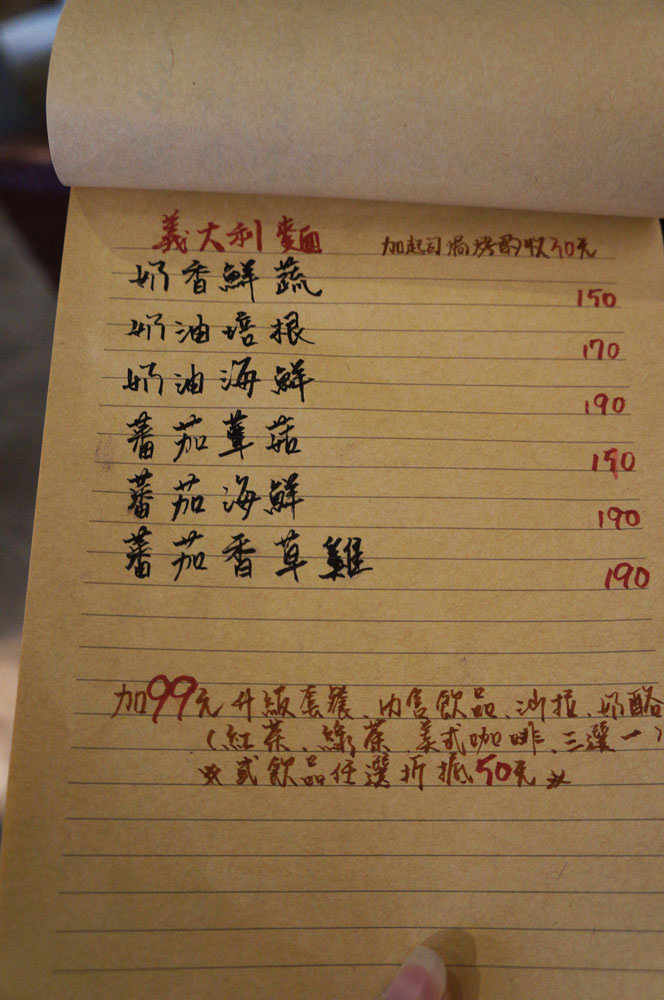 義大利麵 加起司焗烤酌收30元
奶香鮮蔬 150
奶油培根 170
奶油海鮮 190
蕃茄蕈菇 150
蕃茄海鮮 190
蕃茄香草雞 190
加99元升級套餐、內含飲品、沙拉、奶酪
(紅茶、綠茶、美式咖啡、三選一)
※或飲品任選折抵50元※